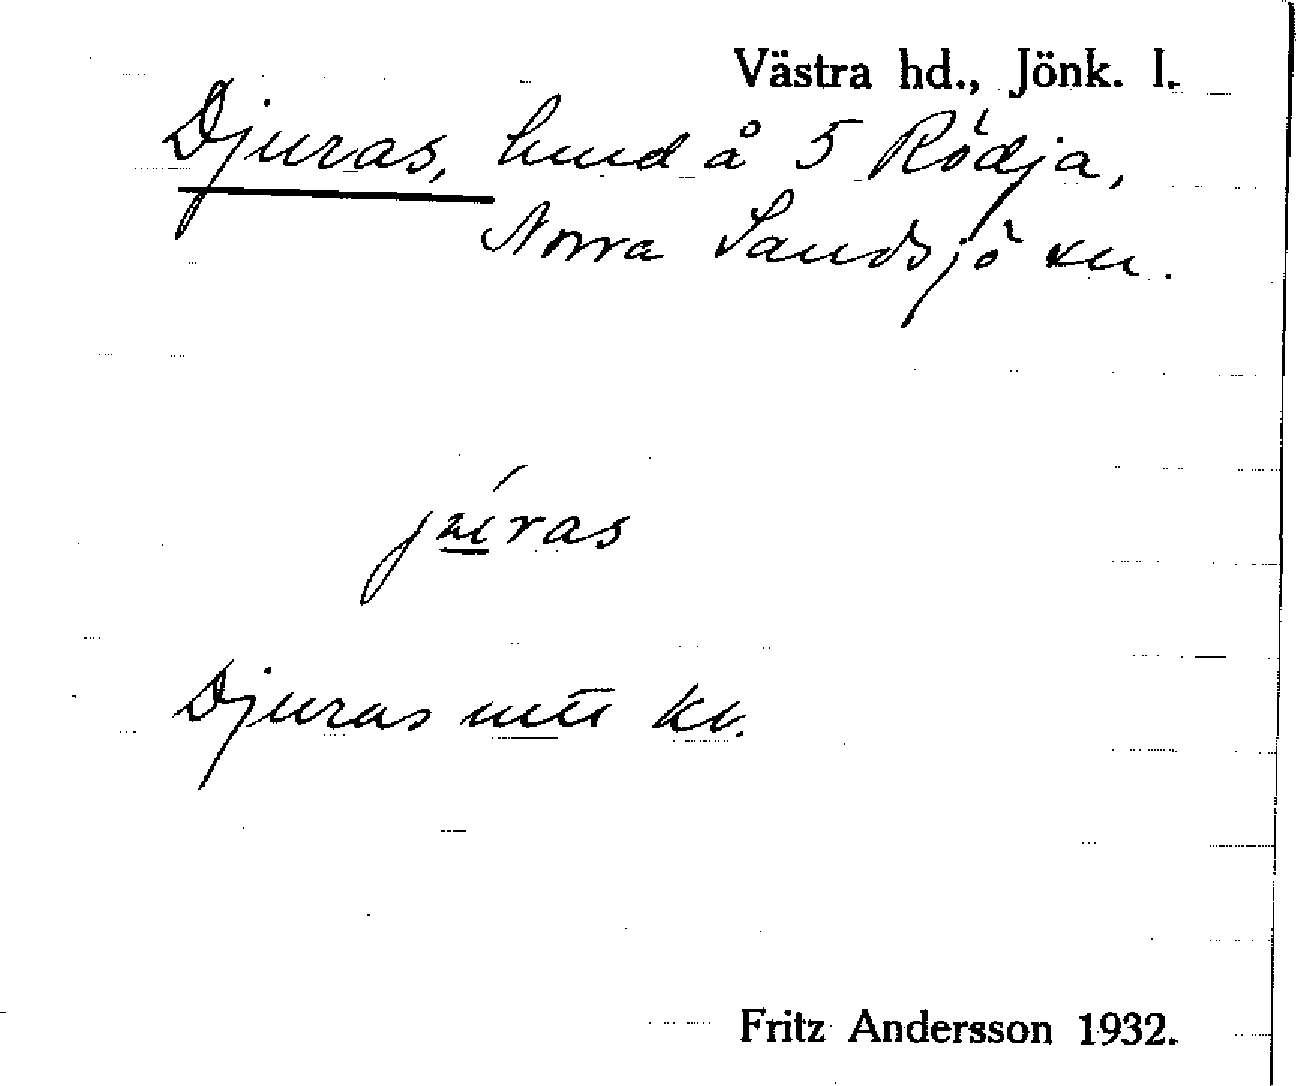 Västra hd., Jönk. l.
Djuras, lund å 5 Rödja,
Norra Sandsjö sn.
Djuras kv.
Fritz Andersson 1932.